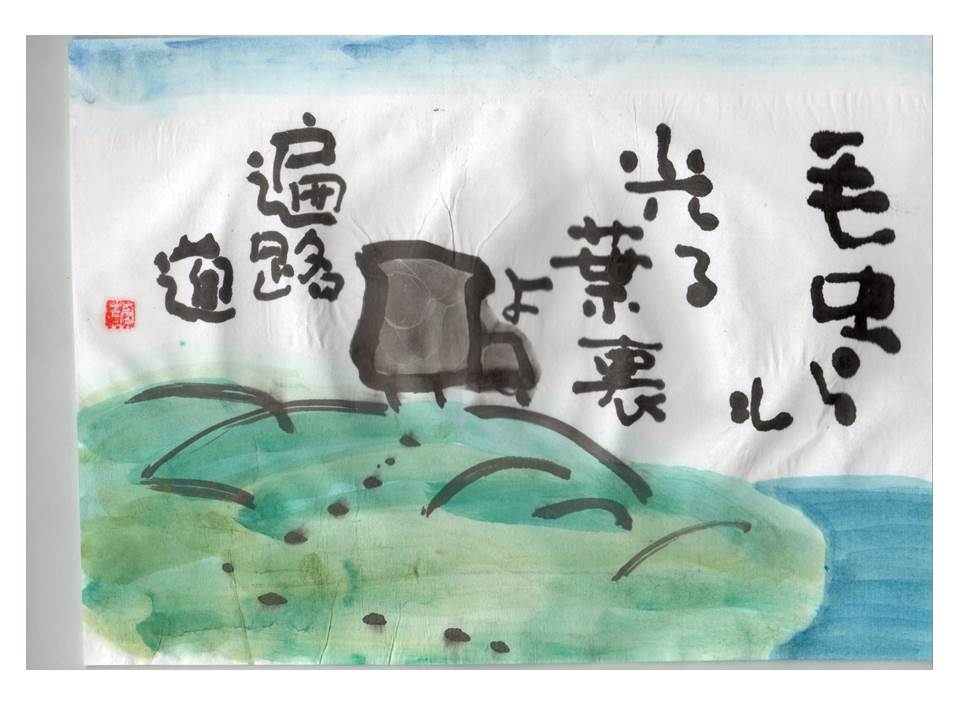 毛虫ら
し
光る
葉裏
よ
遍路
道